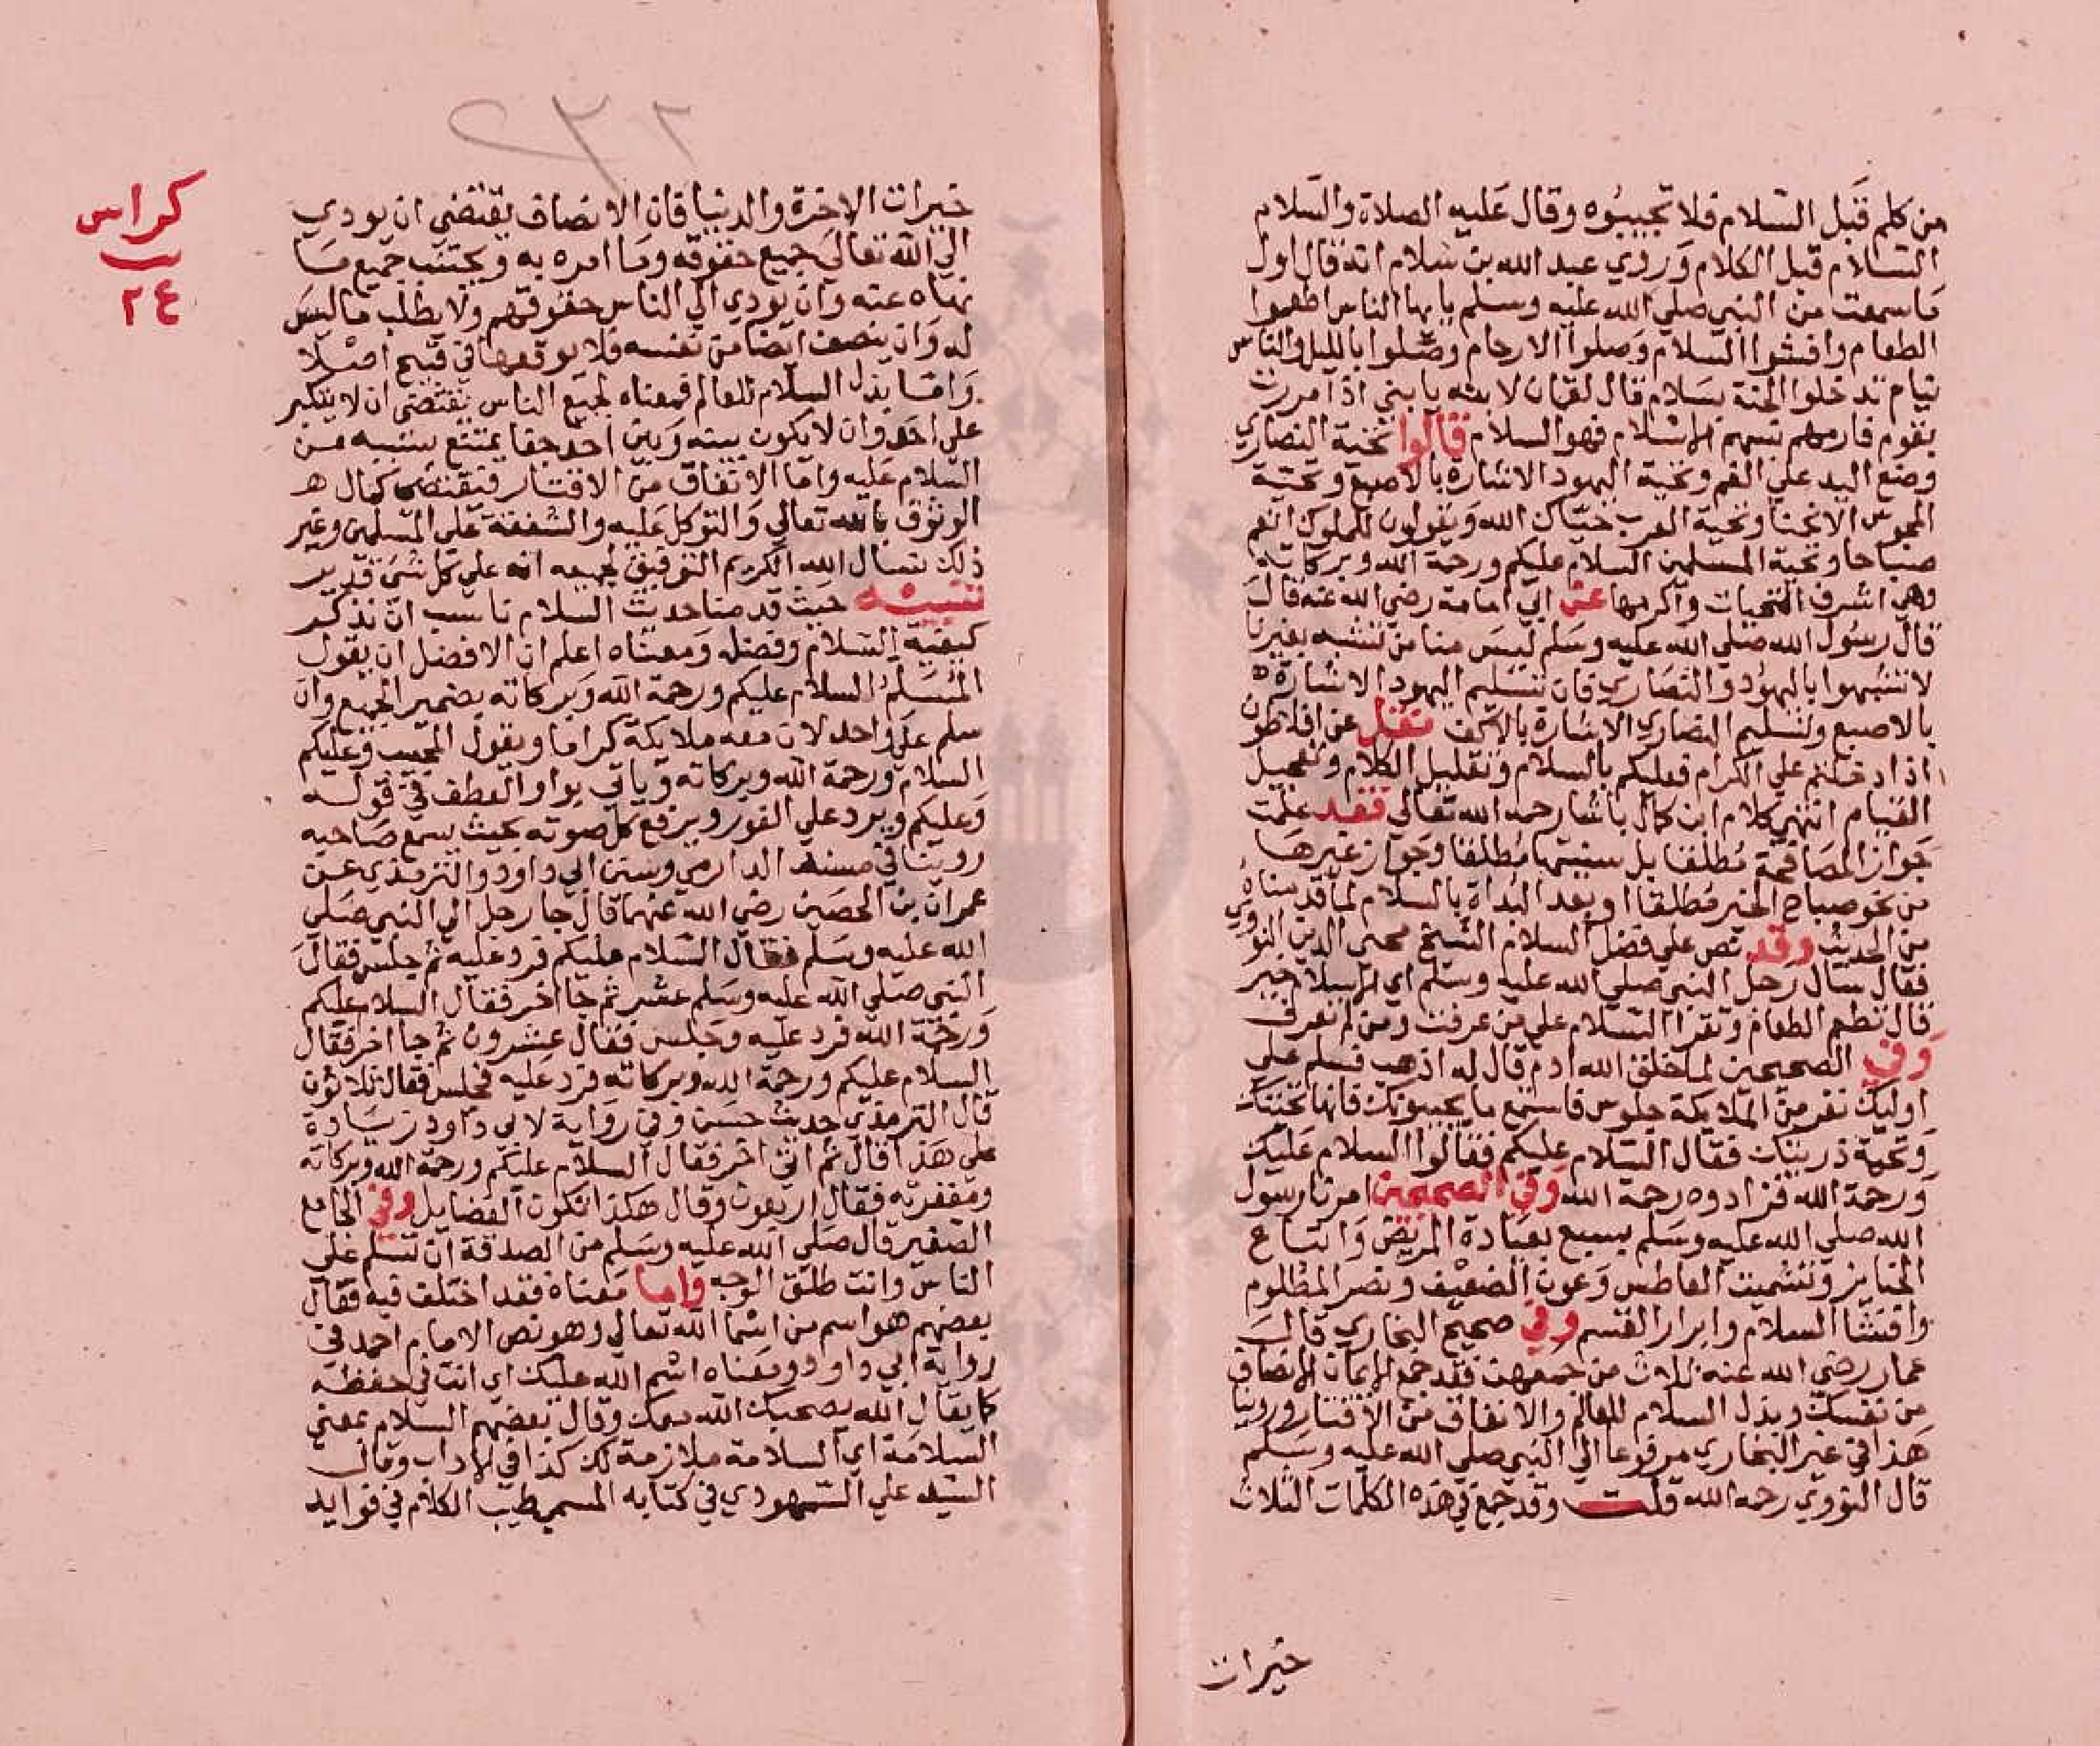 من كلم قبل السلام فلا تجيبوه وقال عليه الصلاة والسلام
السلام قبل الكلام وروي عبد الله بن سلام انه قال اول
ما سمعت من النبي صلي الله عليه وسلم يا يها الناس اطعموا
الطعام وافشوا السلام وصلوا الارحام وصلوا بالليل والناس
نيام تدخلوا الجنة بسلام قال لقمان لابنه يا بني اذا مررت
بقوم فارمهم بسهم الاسلام فهو السلام قالوا تحية النصاري
وضع اليد علي الفم وتحية اليهود الاشارة بالاصبع وتحية
المجوس الانحنا وتحية العرب حياك الله ويقولون للملوك انعم
صباحا وتحية المسلمين السلام عليكم ورحمة الله وبركاته
وهي اشرف التحيات واكرمها عن ابي امامة رضي الله عنه قال
قال رسول الله صلي الله عليه وسلم ليس منا من تشبه بغيرنا
لا تشبهوا باليهود والنصاري فان تسليم اليهود الاشارة
بالاصبع وتسليم النصاري الاشارة بالاكف نقل عن افلاطون
اذا دخلتم علي الكرام فعليكم بالسلام وتقليل الكلام وتعجيل
القيام انتهي كلام ابن كمال باشا رحمه الله تعالي فقد علمت
جواز المصافحة مطلقا بل سنيتها مطلقا وجواز غيرها
من نحو صباح الخير مطلقا او بعد البداة بالسلام لما قدمناه
من الحديث وقد نص علي فضل السلام الشيخ محيي الدين النووي
فقال سال رجل النبي صلي الله عليه وسلم اي الاسلام خير
قال تطعم الطعام وتقرا السلام علي من عرفت ومن لم تعرف
وفي الصحيحين لما خلق الله ادم قال له اذهب فسلم علي
اوليك نفر من الملايكة جلوس فاستمع ما يجيبونك فانها تحيتك
وتحية ذريتك فقال السلام عليكم فقالوا السلام عليك
ورحمة الله فزادوه رحمة الله وفي الصحيحين امرنا رسول
الله صلي الله عليه وسلم بسبع بعيادة المريض واتباع
الجنايز وتشميت العاطس وعون الضعيف ونصر المظلوم
وافشا السلام وابرار القسم وفي صحيح البخاري قال
عمار رضي الله عنه ثلاث من جمعهن فقد جمع الايمان الانصاف
من نفسك وبذل السلام للعالم والانفاق من الاقتار وروينا
هذا في غير البخاري مرفوعا الي النبي صلي الله عليه وسلم
قال النووي رحمه الله قلت وقد جمع في هذه الكلمات الثلاث
خيرات
كراس
٢٤
خيرات الاخرة والدنيا فان الانصاف يقتضي ان يودي
الي الله تعالي جميع حقوقه وما امره به ويجتنب جميع ما
نهاه عنه وان يودي الي الناس حقوقهم ولا يطلب ما ليس
له وان ينصف ايضا من نفسه فلا يوقعها في قبيح اصلا
واما بذل السلام للعالم فمعناه لجميع الناس يقتضي ان لا يتكبر
علي احد وان لا يكون بينه وبين احد جفا يمتنع بسببه من
السلام عليه واما الانفاق من الاقتار فيقتضي كمال
الوثوق بالله تعالي والتوكل عليه والشفقة علي المسلمين وغير
ذلك نسال الله الكريم التوفيق لجميعه انه علي كل شي قدير
تنبيه حيث قدمنا حديث السلام ناسب ان نذكر
كيفية السلام وفضله ومعناه اعلم ان الافضل ان يقول
المسلم السلام عليكم ورحمة الله وبركاته بضمير الجمع وان
سلم علي واحد لان معه ملايكة كراما ويقول المجيب وعليكم
السلام ورحمة الله وبركاته وياتي بواو العطف في قوله
وعليكم ويرد علي الفور ويرفع كل صوته بحيث يسمع صاحبه
روينا في مسند الدارمي وسنن ابي داود والترمذي عن
عمران بن الحصين رضي الله عنهما قال جا رجل الي النبي صلي
الله عليه وسلم فقال السلام عليكم فرد عليه ثم جلس فقال
النبي صلي الله عليه وسلم عشر ثم جا اخر فقال السلام عليكم
ورحمة الله فرد عليه وجلس فقال عشرون ثم جا اخر فقال
السلام عليكم ورحمة الله وبركاته فرد عليه فجلس فقال ثلاثون
قال الترمذي حديث حسن وفي رواية لابي داود زيادة
علي هذا قال ثم اتي اخر فقال السلام عليكم ورحمة الله وبركاته
ومغفرته فقال اربعون وقال هكذا تكون الفضايل وفي الجامع
الصغير قال صلي الله عليه وسلم من الصدقة ان تسلم علي
الناس وانت طلق الوجه واما معناه فقد اختلف فيه فقال
بعضهم هو اسم من اسما الله تعالي وهو نص الامام احمد في
رواية ابي داود ومعناه اسم الله عليك اي انت في حفظه
كما يقال الله يصحبك الله معك وقال بعضهم السلام بمعني
السلامة اي السلامة ملازمة لك كذا في الاداب وقال
السيد علي السمهودي في كتابه المسمي طيب الكلام في فوايد